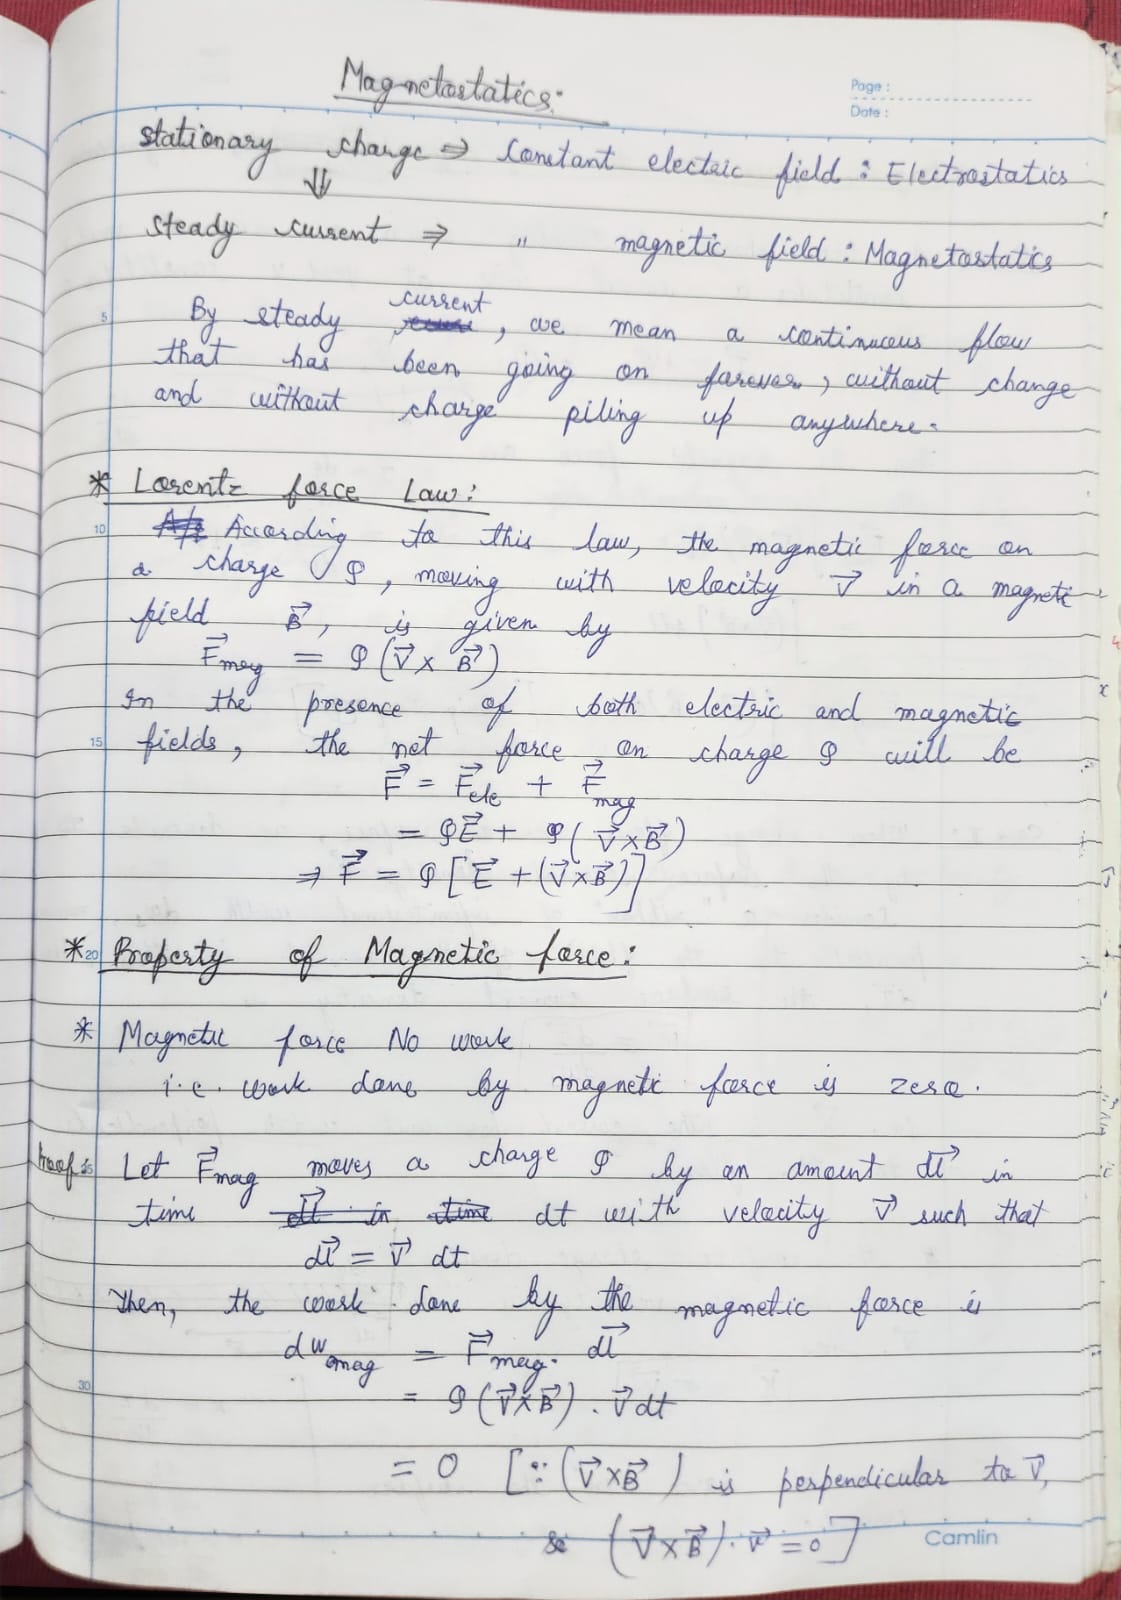 Magnetostatics:
Page :
Date :
stationary charge ⇒ constant electric field : Electrostatics
⇓
steady current ⇒ " magnetic field : Magnetostatics
current
5 By steady , we mean a continuous flow
that has been going on forever, without change
and without charge piling up anywhere.
* Lorentz force Law :
10 According to this law, the magnetic force on
a charge Q, moving with velocity V⃗ in a magnetic
field B⃗, is given by
F⃗mag = Q (V⃗ × B⃗)
In the presence of both electric and magnetic
15 fields, the net force on charge Q will be
F⃗ = F⃗ele + F⃗mag
= QE⃗ + Q (V⃗ × B⃗)
⇒ F⃗ = Q [E⃗ + (V⃗ × B⃗)]
* 20 Property of Magnetic force :
* Magnetic force No work
i.e. work done by magnetic force is zero.
Proof : 25 Let F⃗mag moves a charge Q by an amount dl⃗ in
time dl⃗ in time dt with velocity V⃗ such that
dl⃗ = V⃗ dt
Then, the work done by the magnetic force is
dWmag = F⃗mag . dl⃗
30 = Q (V⃗ × B⃗) . V⃗ dt
= 0 [∵ (V⃗ × B⃗) is perpendicular to V⃗,
so (V⃗ × B⃗) . V⃗ = 0]
Camlin